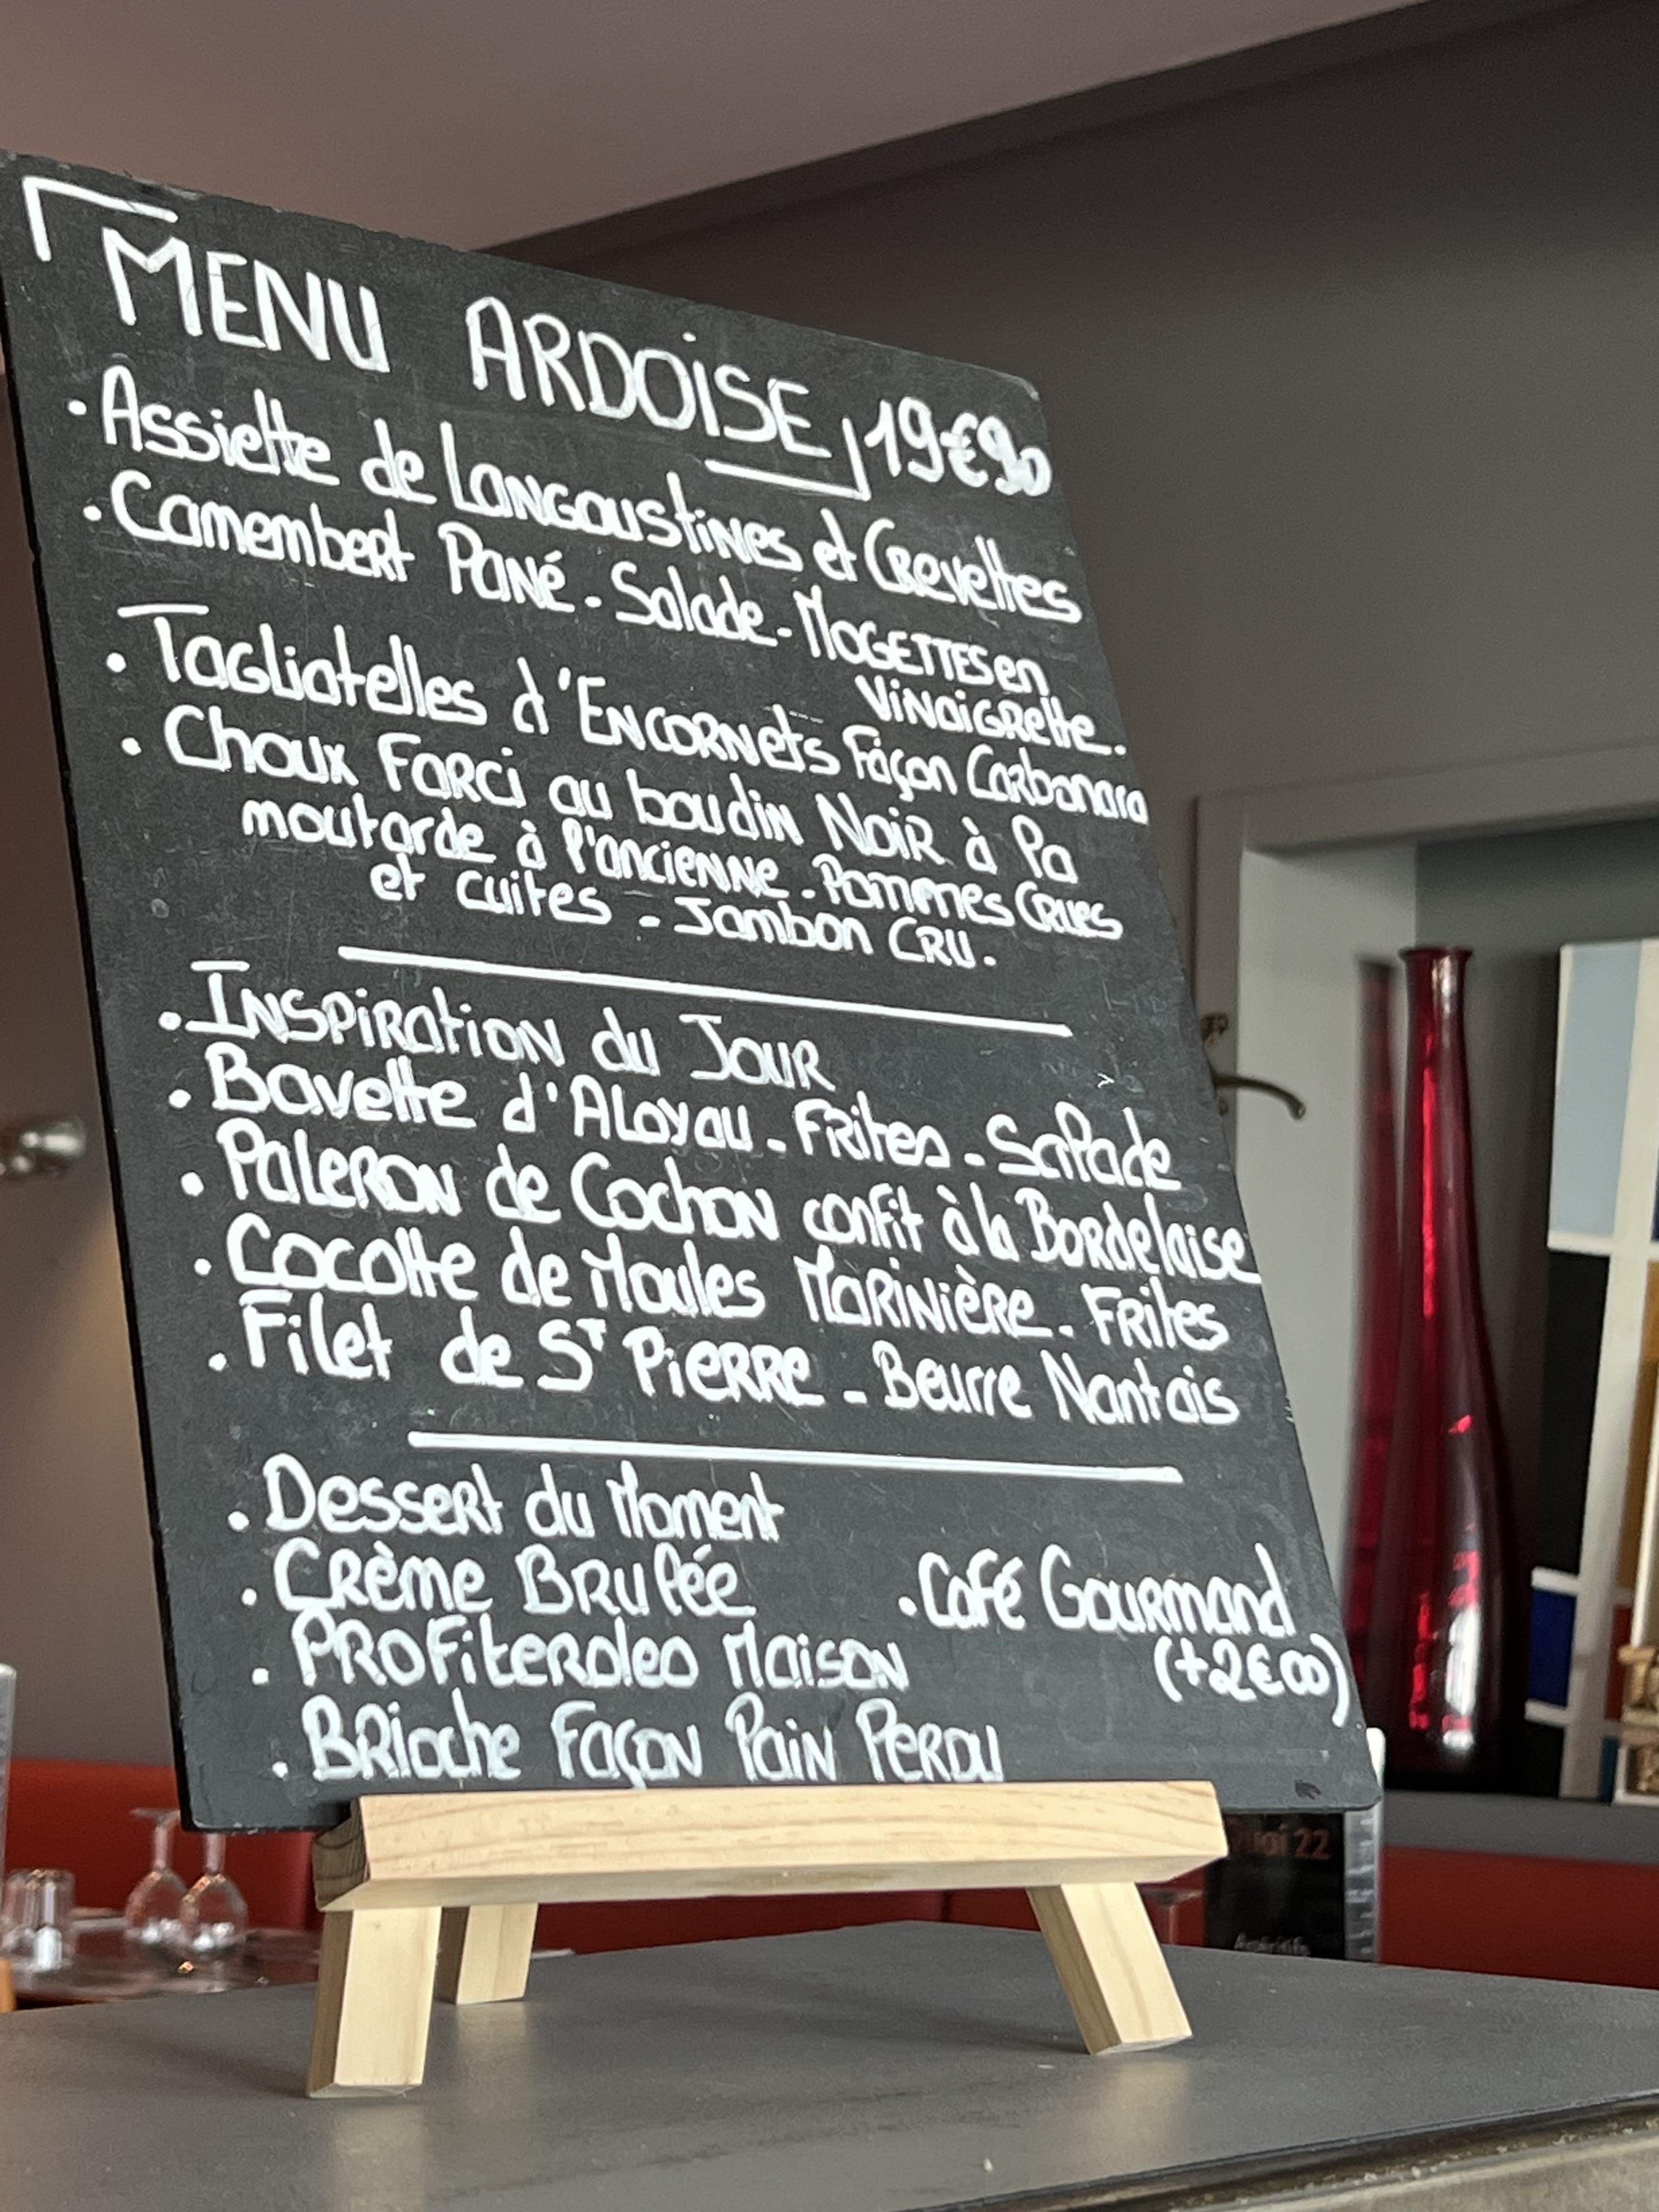 MENU ARDOISE 19€90
. Assiette de Langoustines et Crevettes
. Camembert Pané - Salade - Mogettes en
Vinaigrette.
. Tagliatelles d'Encornets Façon Carbonara
. Choux Farci au boudin Noir à la
moutarde à l'ancienne - Pommes Crues
et cuites - Jambon CRU.
. Inspiration du Jour
. Bavette d'Aloyau - Frites - Salade
. Paleron de Cochon confit à la Bordelaise
. Cocotte de Moules Marinière - Frites
. Filet de St Pierre - Beurre Nantais
. Dessert du Moment
. Crème Brulée
. Café Gourmand
(+2€00)
. Profiteroles Maison
. Brioche Façon Pain Perdu
22